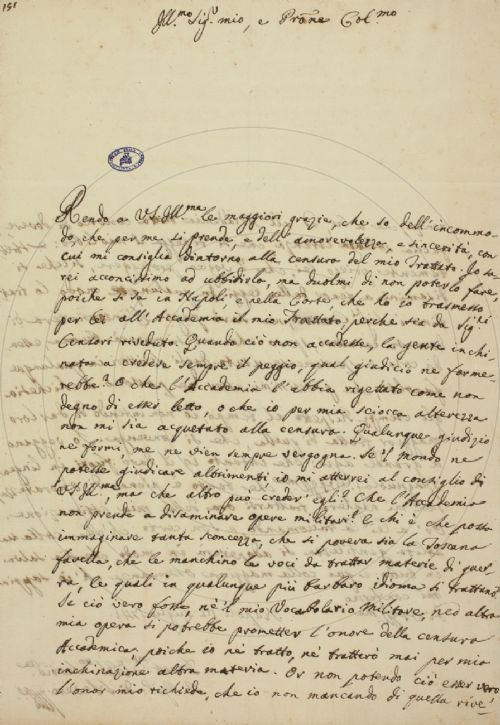 151
Ill.mo Sig.r mio, e Prōne Col.mo
Rendo a VS. Ill.ma le maggiori grazie, che so dell'incommo-
do, che per me si prende, e dell'amorevolezza, e sincerità, con
cui mi consiglia dintorno alla censura del mio Trattato. Io sa-
rei acconcissimo ad ubbidirlo, ma duolmi di non poterlo fare,
poiche si sa in Napoli, e nella Corte, che ho io trasmesso
per lei all'Accademia il mio Trattato, perche sia da Sig.ri
Censori riveduto. Quando ciò non accadesse, la gente inchi-
nata a credere sempre il peggio, qual giudicio ne forme-
rebbe? O che l'Accademia l'abbia rigettato come non
degno di esser letto, o che io per mia sciocca alterezza
non mi sia acquetato alla censura. Qualunque giudizio
ne formi, me ne vien sempre vergogna. Se'l Mondo ne
potesse giudicare altrimenti io mi atterrei al consiglio di
VS. Ill.ma, ma che altro può creder'egli? Che l'Accademia
non prende a disaminare opere militari? E chi è che possa
immaginare tanta sconcezza, che si povera sia la Toscana
favella, che le manchino le voci da trattar materie di guer-
ra, le quali in qualunque più barbaro idioma si trattano?
Se ciò vero fosse, nè il mio Vocabolario Militare, nè ad altra
mia opera si potrebbe prometter l'onore della censura
Accademica, poiche io nè tratto, nè tratterò mai per mia
inchinazione altra materia. Or non potendo ciò esser vero
l'onor mio richiede, che io non mancando di quella rive-